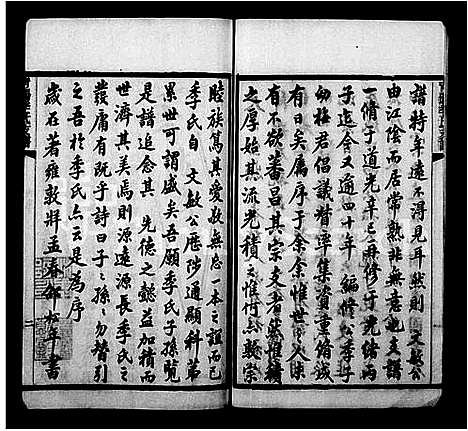 譜特年遠不得見耳然則 文敏公
由江陰而居常熟非無意也支譜
一脩于道光辛巳再修于光緒丙
子迄今又逾四十年 編修公季子
幼梅君倡議督率集資重脩誠
有日矣屬序于余余惟世之人未
有不欲蕃昌其宗支者然惟積
之厚始其流光積之惟行公敦宗
睦族篤其愛敬無忘一本之誼而已
季氏自 文敏公歷陟通顯科第
累世可謂盛矣吾願季氏子孫覽
是譜追念其 先德之懿益加積而
世濟其美焉則源遠流長季氏之
發庸有既乎詩曰子子孫孫勿替引
之吾於季氏亦云是為序
歲在著雍敦牂孟春邵松年書